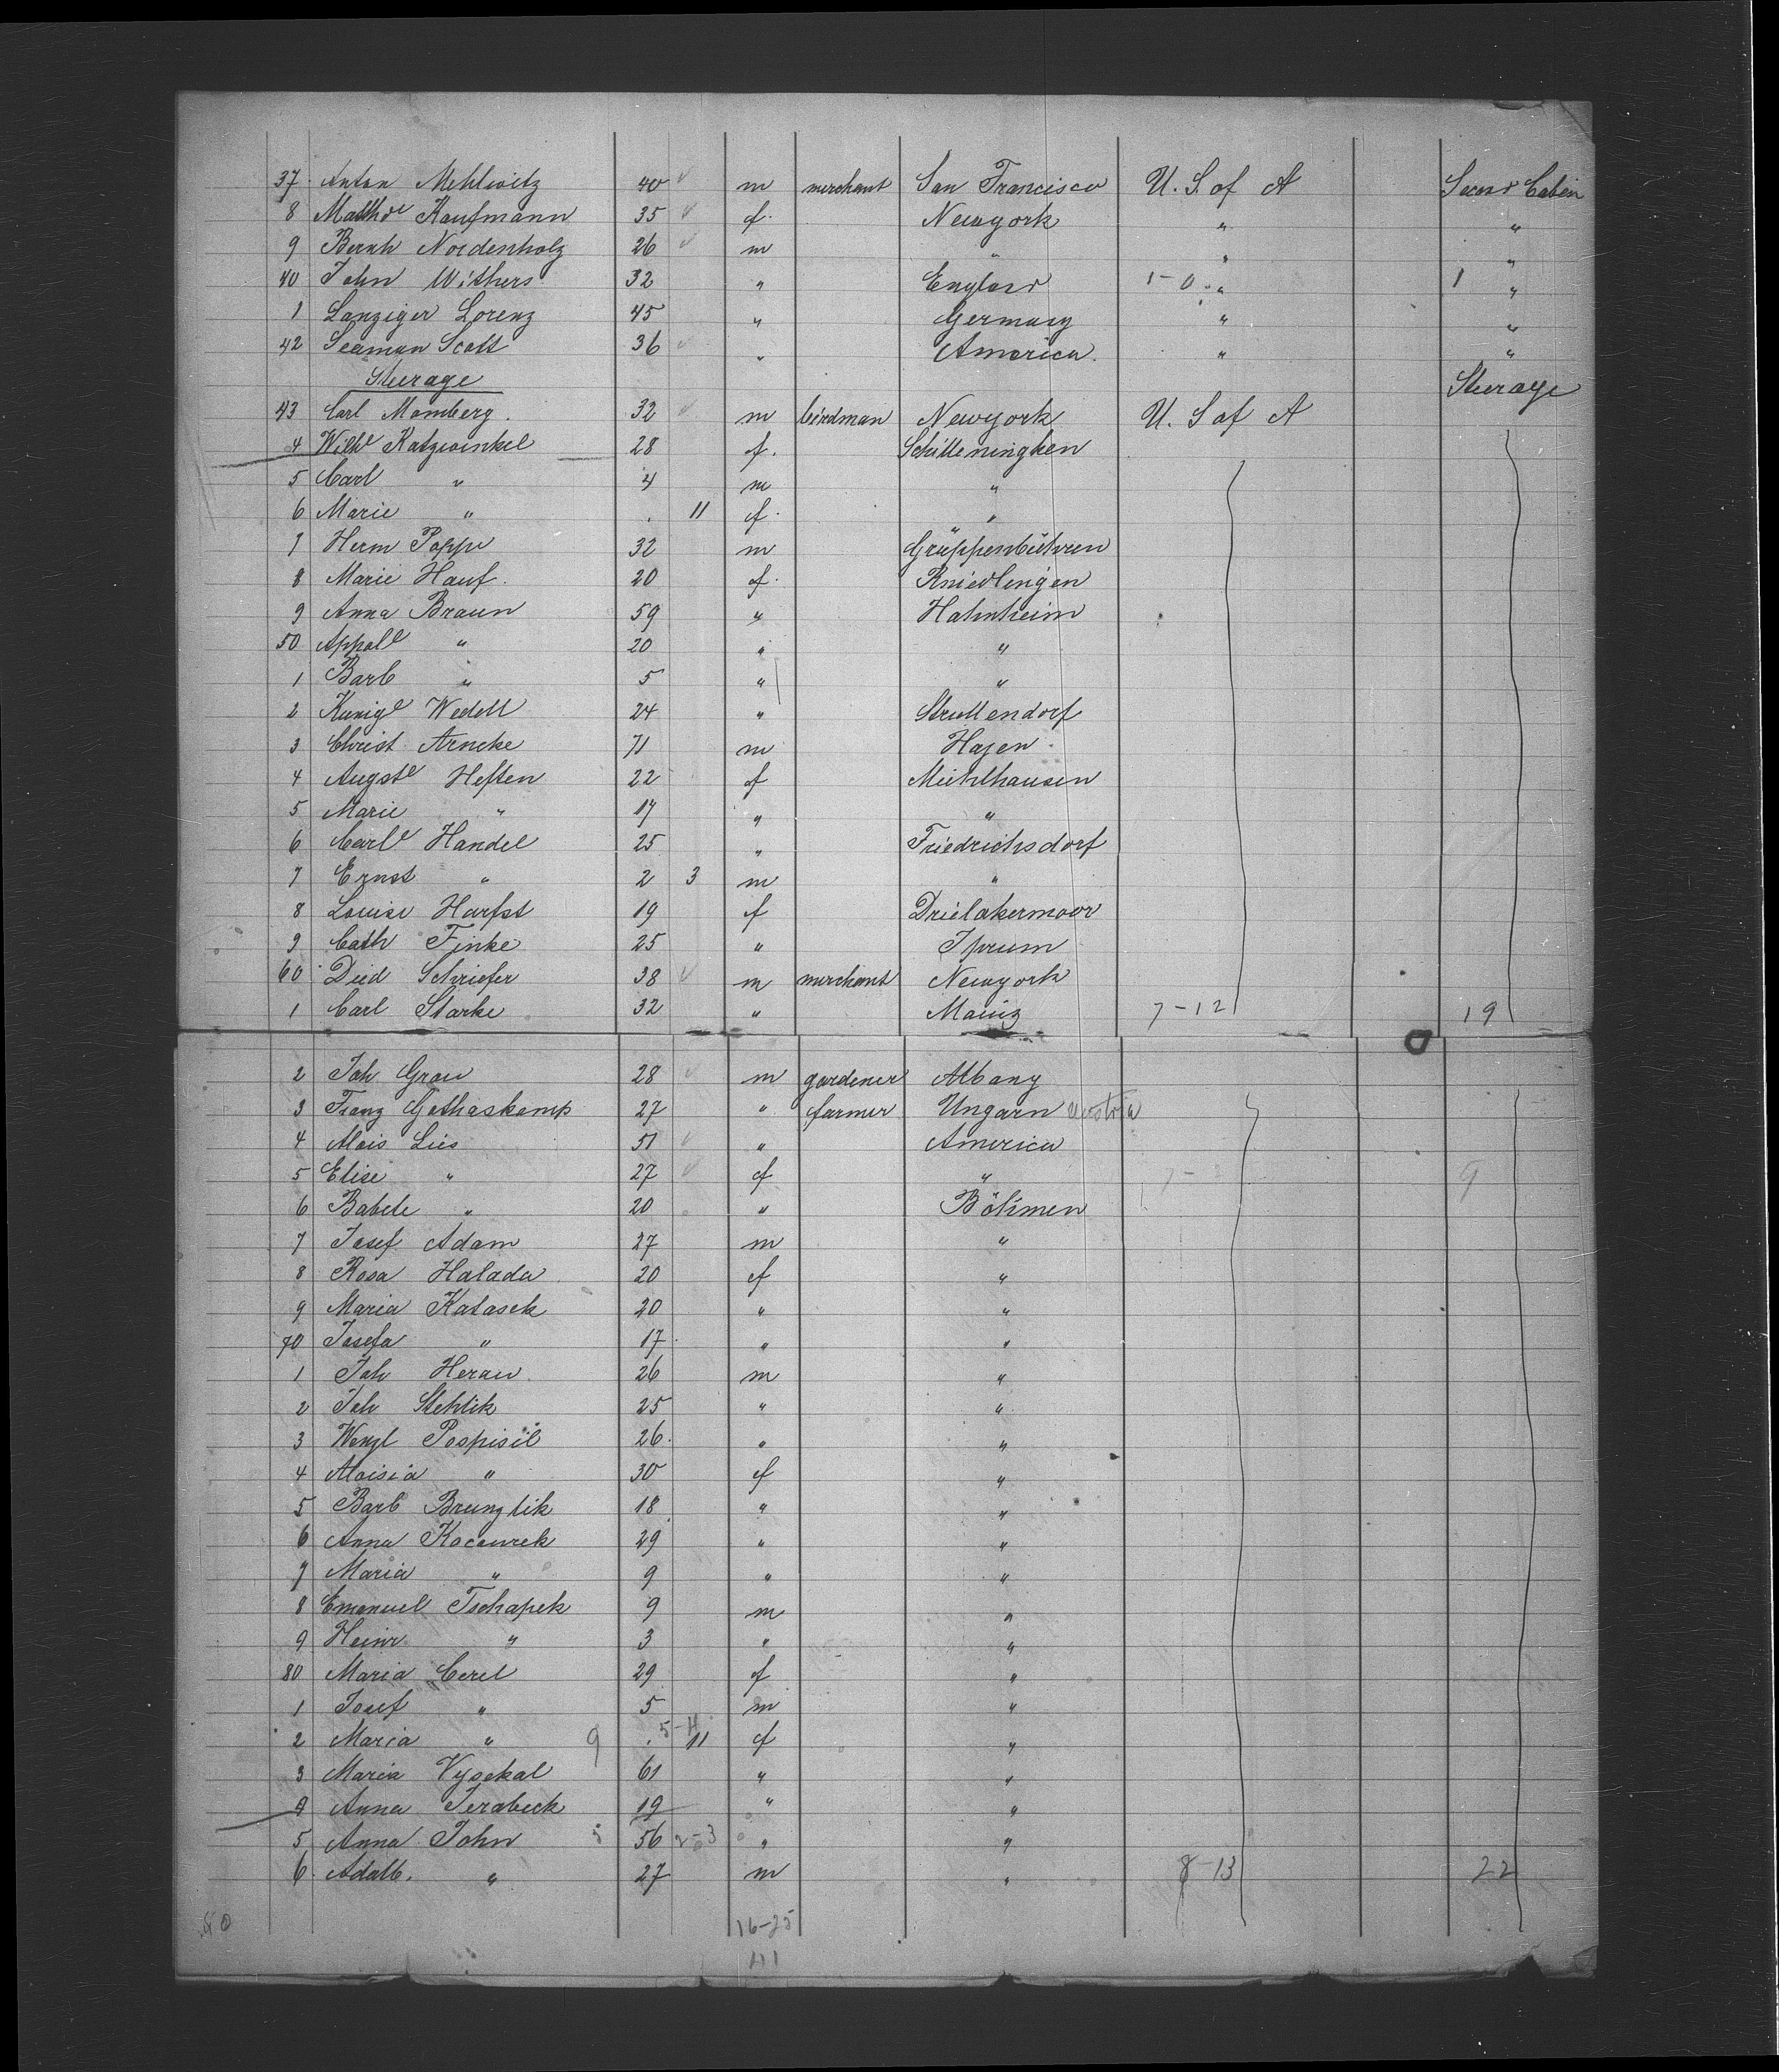 37 Anton Mehlwitz 40 m merchant San Francisco U. S. of A Second Cabin
8 Mathde Kaufmann 35 f. Newyork " "
9 Bernh Nordenholz 26 m " " "
40 John Withers 32 " England 1-0 " 1 "
1 Lanziger Lorenz 45 " Germany " "
42 Seaman Scott 36 " America. " "
Steerage Steerage
43 Carl Momberg. 32 m birdman Newyork U. S of A
4 Wilhe Katzwinkel 28 f. Schilleningken
5 Carl " 4 m "
6 Marie " . 11 f. "
7 Herm Poppe 32 m Grüppenbühren
8 Marie Hauf. 20 f. Kniedlingen
9 Anna Braun 59 " Hahnheim
50 Appole " 20 " "
1 Barb " 5 " "
2 Kunige Wedell 24 " Strullendorf
3 Christ Arneke 71 m Hagen.
4 Auguste Heften 22 f Mühlhausen
5 Marie " 17 " "
6 Carle Handel 25 " Friedrichsdorf
7 Ernst " 2 3 m "
8 Louise Harfst 19 f Drielakermoor
9 Cath Finke 25 " Iprum
60 Died Schriefer 38 m merchant Newyork
1 Carl Starke 32 " Mainz 7-12 19
2 Joh Grau 28 m gardener Albany
3 Franz Gathaskamp 27 " farmer Ungarn
4 Alois Lies 51 " America
5 Elise " 27 f " 9
6 Babete " 20 " Böhmen
7 Josef Adam 27 m "
8 Rosa Halada 20 f "
9 Maria Katasek 20 " "
70 Josefa " 17 " "
1 Joh Heran 26 m "
2 Joh Stehlik 25 " "
3 Wenzl Pospisil 26. " "
4 Aloisia " 30 f "
5 Barb Brunzlik 18 " "
6 Anna Kocourek 29 " "
7 Maria " 9 " "
8 Emanuel Tschapek 9 m "
9 Heinr " 3 " "
80 Maria Cerel 29 f "
1 Josef " 5 m "
2 Maria " 9 . 5-4 11 f "
3 Maria Vysekal 61 " "
4 Anna Jerabeck 19 " "
5 Anna John 5 56 2-3 " "
6 Adalb. " 27 m " 8-13 22
16-25